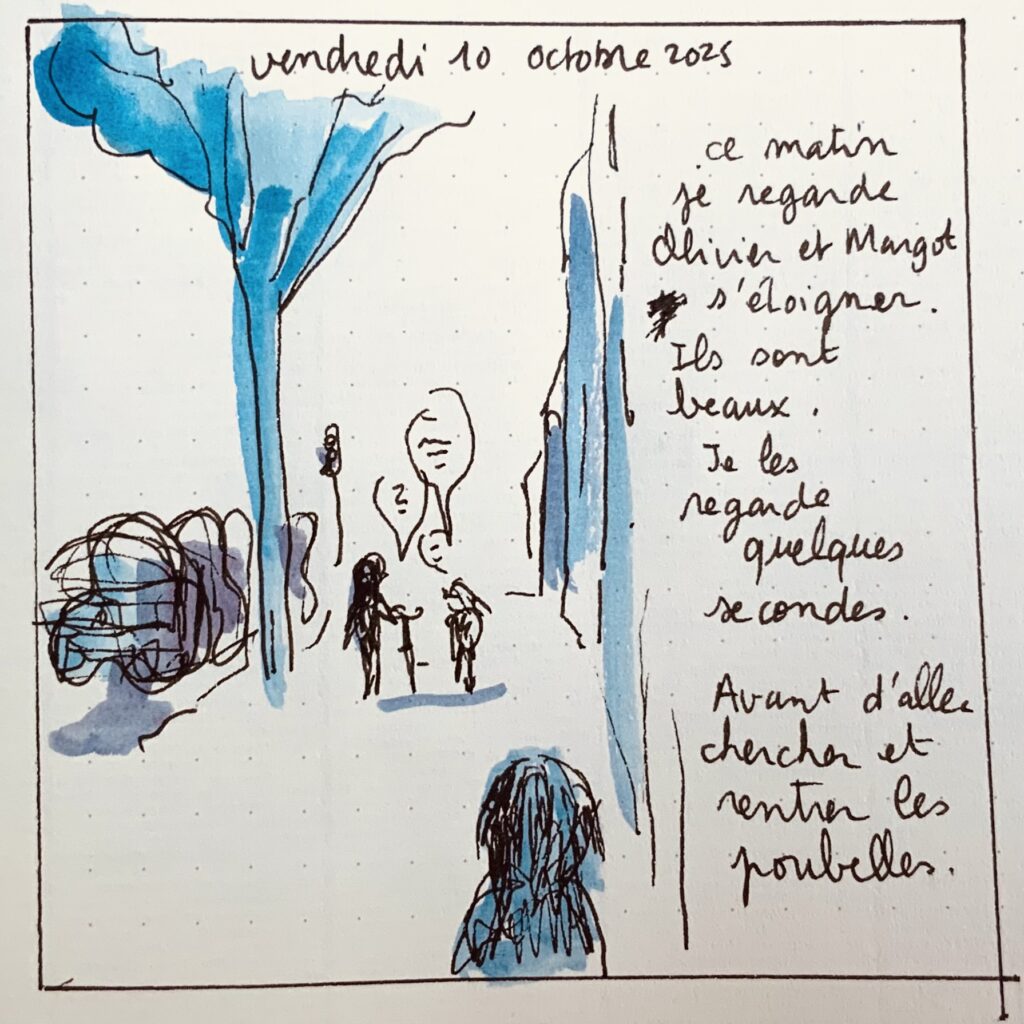 vendredi 10 octobre 2025
ce matin
je regarde
Olivier et Margot
s'éloigner.
Ils sont
beaux.
Je les
regarde
quelques
secondes.
Avant d'aller
chercher et
rentrer les
poubelles.
?